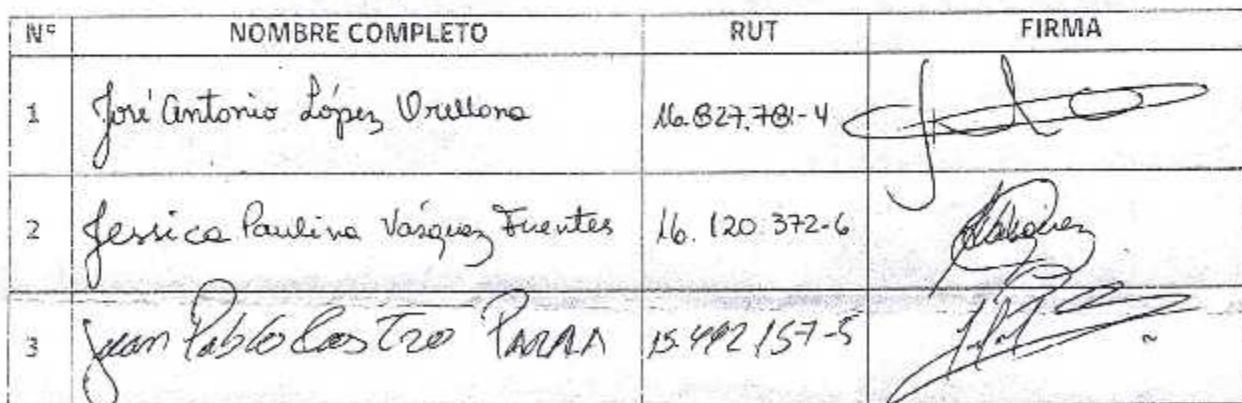 Nº NOMBRE COMPLETO RUT FIRMA
1 José Antonio López Orellana 16.827.781-4
2 Jessica Paulina Vásquez Fuentes 16.120.372-6
3 Juan Pablo Castro PARRA